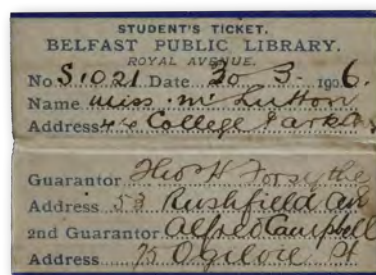 STUDENT'S TICKET.
BELFAST PUBLIC LIBRARY.
ROYAL AVENUE.
No. S1021 Date 30-3-1906.
Name Miss Mc Lutton
Address 44 College Park
Guarantor Thos H Forsythe
Address 53 Rushfield Ave
2nd Guarantor Alfred Campbell
Address 75 Ogilvie St